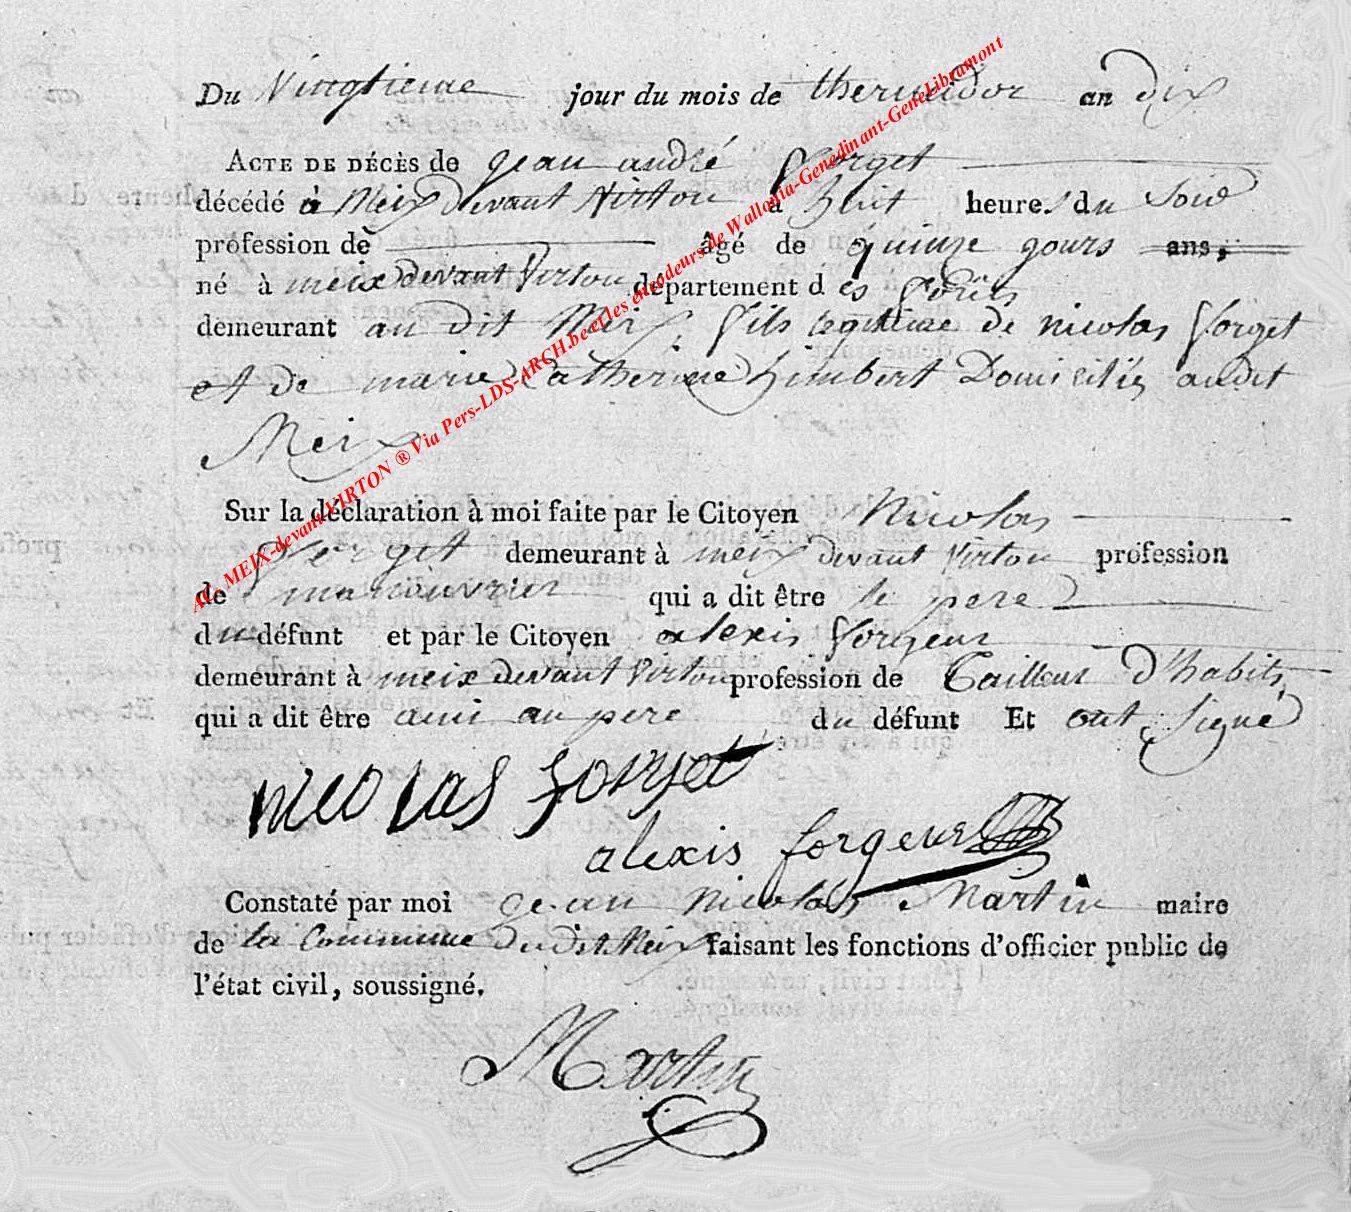 Du Vingtieme jour du mois de thermidor an dix
ACTE DE DÉCÈS de jean andré forget
décédé à Meix devant Virton à huit heures du soir
profession de âgé de quinze jours ans,
né à meix devant Virton département des forêts
demeurant au dit Meix, fils legitime de nicolas forget
et de marie Catherine himbert Domiciliés audit
Meix
Sur la déclaration à moi faite par le Citoyen Nicolas
forget demeurant à meix devant Virton profession
de manouvrier qui a dit être le pere
du défunt et par le Citoyen alexis forgeur
demeurant à meix devant Virton profession de Tailleur D'habits,
qui a dit être ami au pere du défunt Et ont Signé
nicolas forget
alexis forgeur
Constaté par moi jean nicolas Martin maire
de la Commune Dudit Meix faisant les fonctions d'officier public de
l'état civil, soussigné.
Martin
MEIX-devant-VIRTON ® Via Pers-LDS-ARCH.be et les encodeurs de Wallonia-Genedinant-GeneLibramont